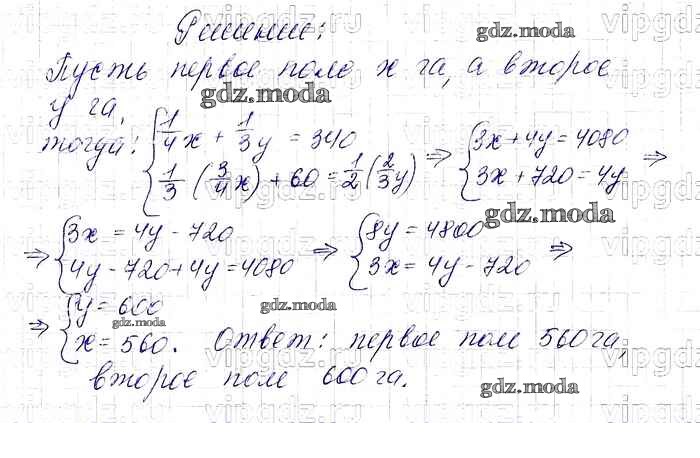 Решение:
Пусть первое поле x га, а второе
y га,
тогда: { 1/4 x + 1/3 y = 340 ; 1/3 (3/4 x) + 60 = 1/2 (2/3 y) ⇒ { 3x + 4y = 4080 ; 3x + 720 = 4y ⇒
⇒ { 3x = 4y - 720 ; 4y - 720 + 4y = 4080 ⇒ { 8y = 4800 ; 3x = 4y - 720 ⇒
⇒ { y = 600 ; x = 560. Ответ: первое поле 560 га,
второе поле 600 га.
gdz.moda
gdz.moda
gdz.moda
gdz.moda
gdz.moda
gdz.moda
vipgdz.ru